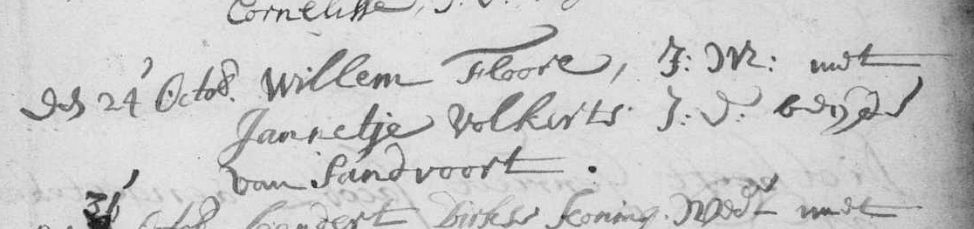 Cornelisse, J.
Des 24 Octob. Willem Floore, J: M: met
Jannetje Volkerts J: D: beÿde
van Sandvoort.
31 octob Leendert Dirksz Koning. Wedr met